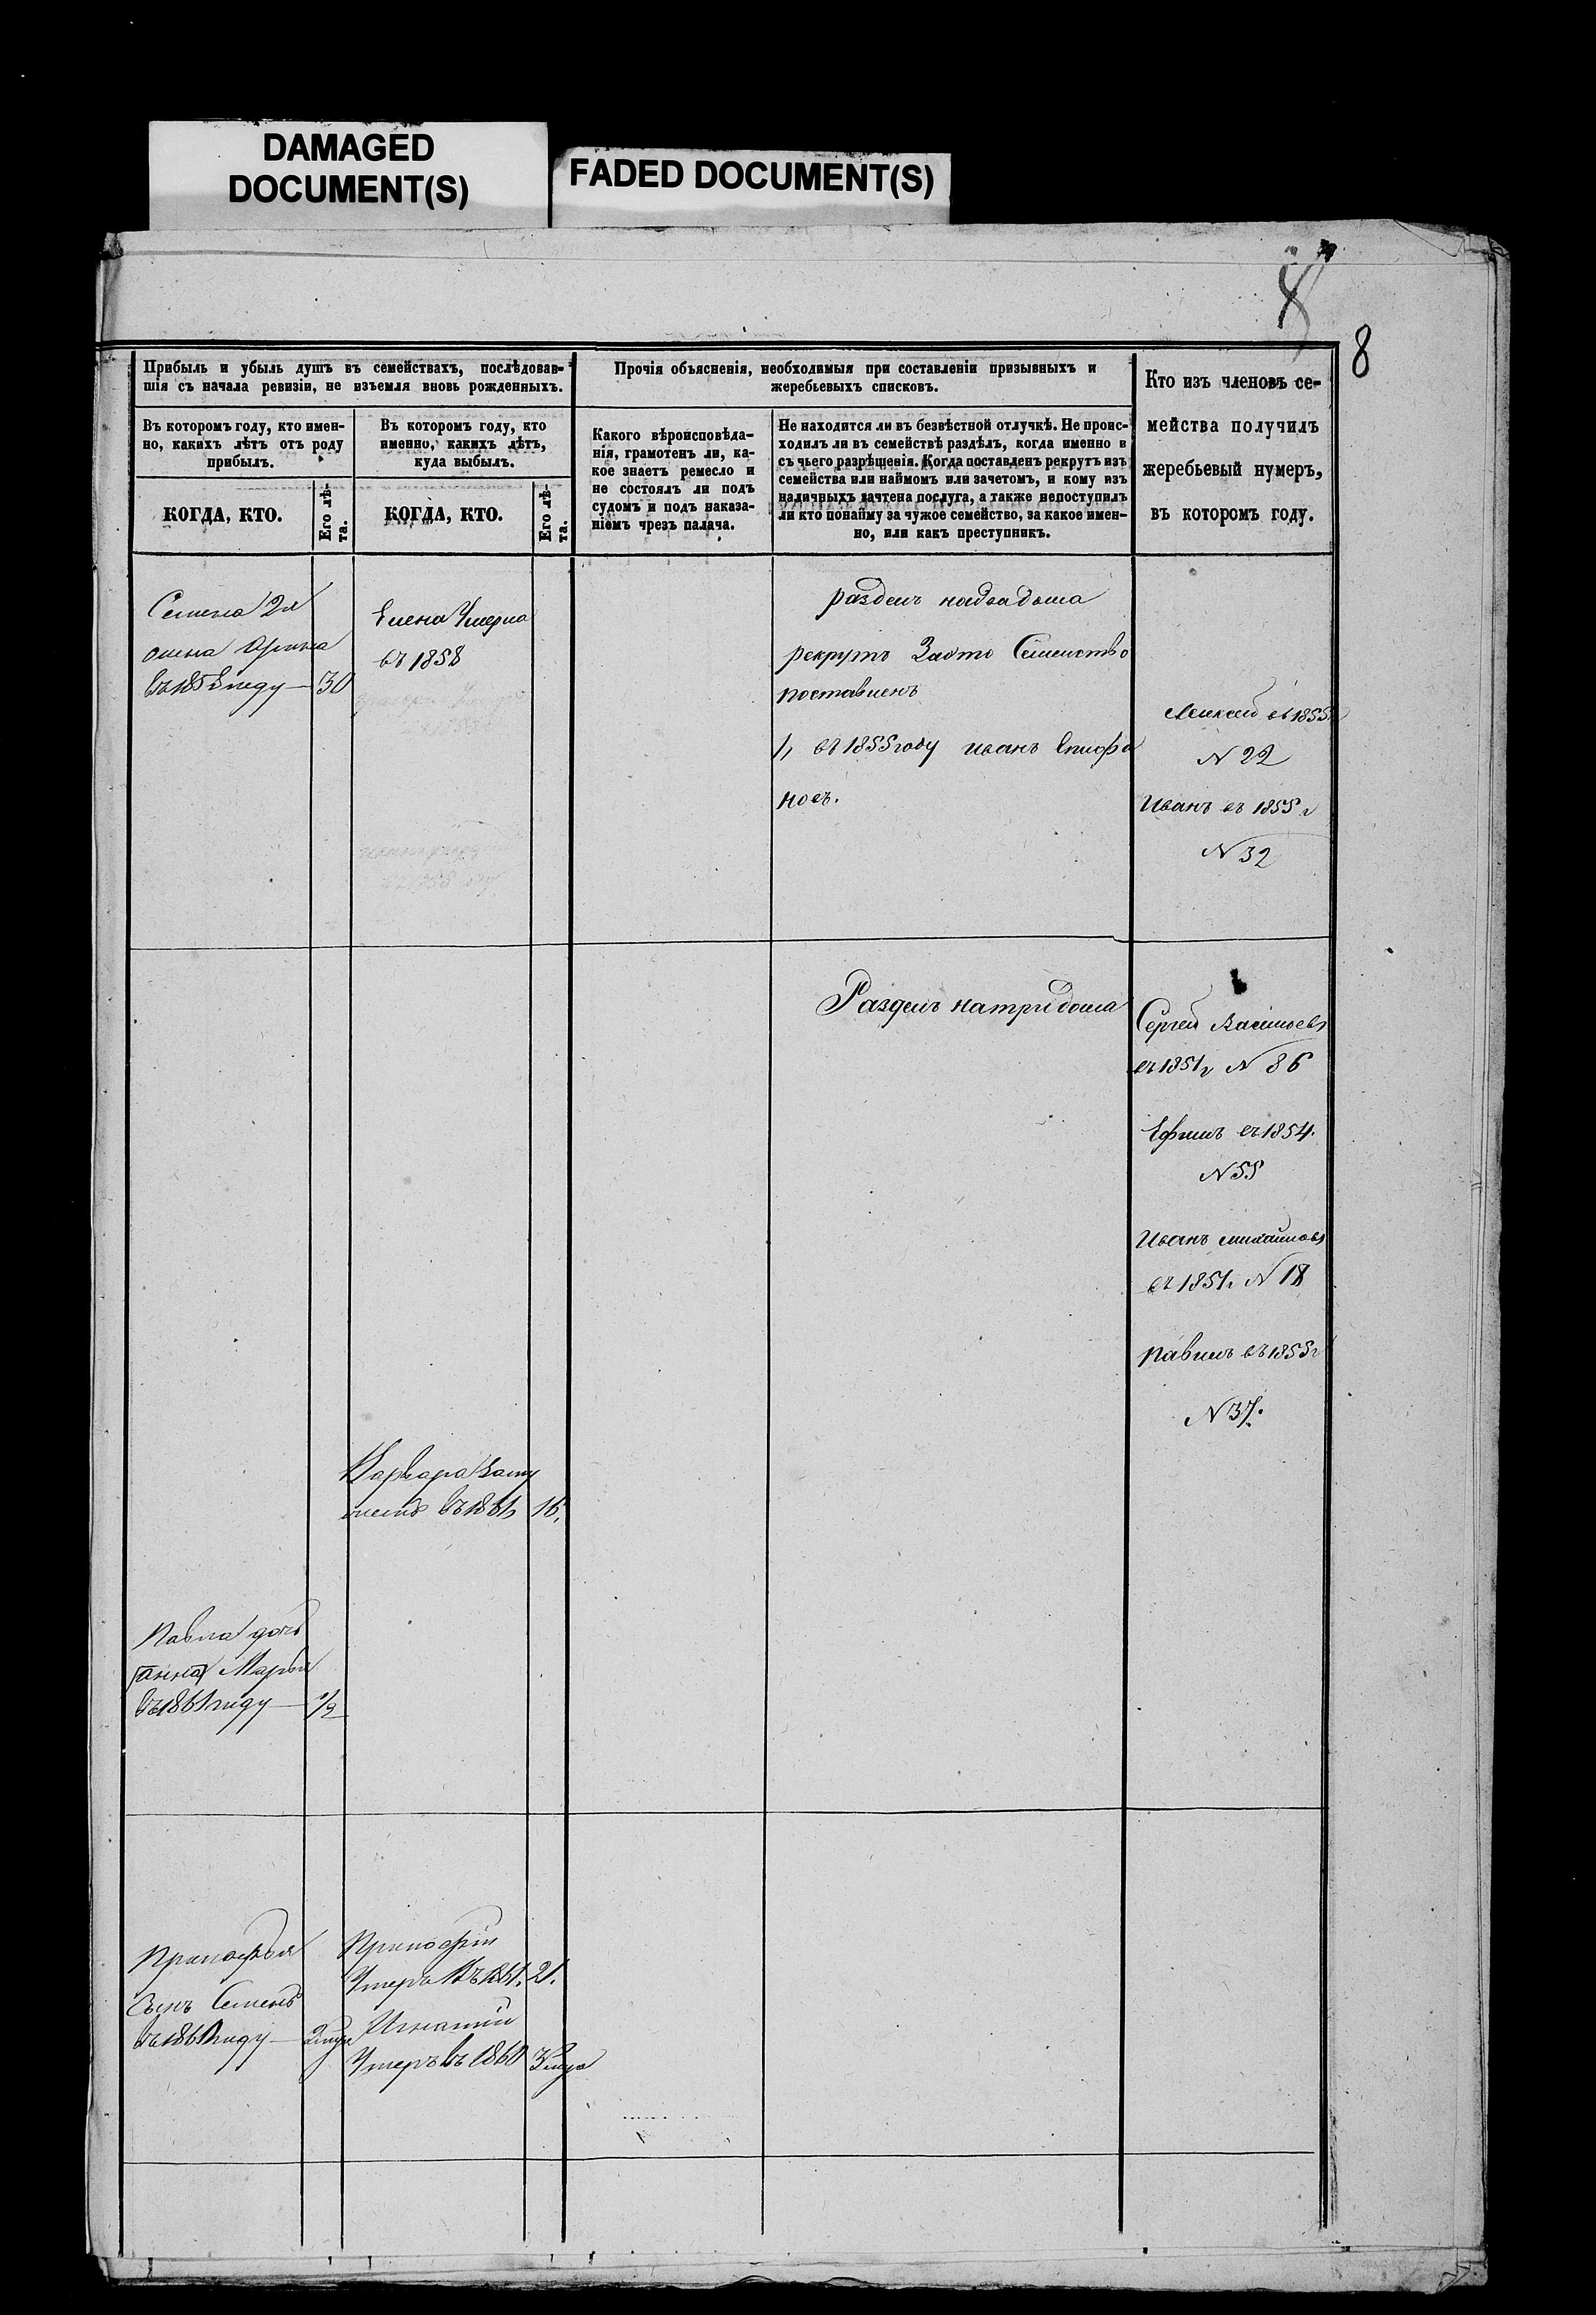 DAMAGED
DOCUMENT(S)
FADED DOCUMENT(S)
8
8
Прибыль и убыль душъ въ семействахъ, послѣдовав-
шія съ начала ревизіи, не изъемля вновь рожденныхъ.
Прочія объясненія, необходимыя при составленіи призывныхъ и
жеребьевыхъ списковъ.
Кто изъ членовъ се-
мейства получилъ
жеребьевый нумеръ,
въ которомъ году.
Въ которомъ году, кто имен-
но, какихъ лѣтъ отъ роду
прибылъ.
Въ которомъ году, кто
именно, какихъ лѣтъ,
куда выбылъ.
Какого вѣроисповѣда-
нія, грамотенъ ли, ка-
кое знаетъ ремесло и
не состоялъ ли подъ
судомъ и подъ наказа-
ніемъ чрезъ палача.
Не находится ли въ безвѣстной отлучкѣ. Не проис-
ходилъ ли въ семействѣ раздѣлъ, когда именно и
съ чьего разрѣшенія. Когда поставленъ рекрутъ изъ
семейства или наймомъ или зачетомъ, и кому изъ
наличныхъ зачтена послуга, а также непоступилъ
ли кто понайму за чужое семейство, за какое имен-
но, или какъ преступникъ.
КОГДА, КТО.
Его лѣ-
та.
КОГДА, КТО.
Его лѣ-
та.
Семена 2я
жена Арина
въ 1858 году — 30
Елена Умерла
въ 1858
разделъ надва дома
рекрутъ Заэто Семейство
поставленъ
1, въ 1855 году иванъ Епифа
новъ.
Алексей въ 1855г
N 22
Иванъ въ 1855 г
N 32
Разделъ натри дома
Сергей Васильевъ
въ 1851г N 86
Ефимъ въ 1854.
N 55
Иванъ михайловъ
въ 1851г N 18
павилъ въ 1855г
N 37.
Варвара Заму
жемъ въ 1861 16.
Павла дочь
анна Марья
въ 1861 году — 1/2
Умеръ Въ 1861. 21.
Сынъ Семенъ
въ 1860 году —
Игнатий
Умеръ въ 1860